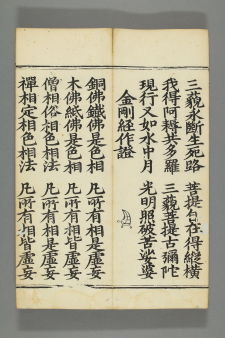 三藐永斷生死路 菩提自在得縱橫
我得阿耨共多羅 三藐菩提古彌陀
現行又如水中月 光明照破苦娑婆
金剛經作證
銅佛鐵佛是色相 凡所有相是虛妄
木佛紙佛是色相 凡所有相皆虛妄
僧相俗相色相法 凡所有相是虛妄
禪相定相色相法 凡所有相皆虛妄